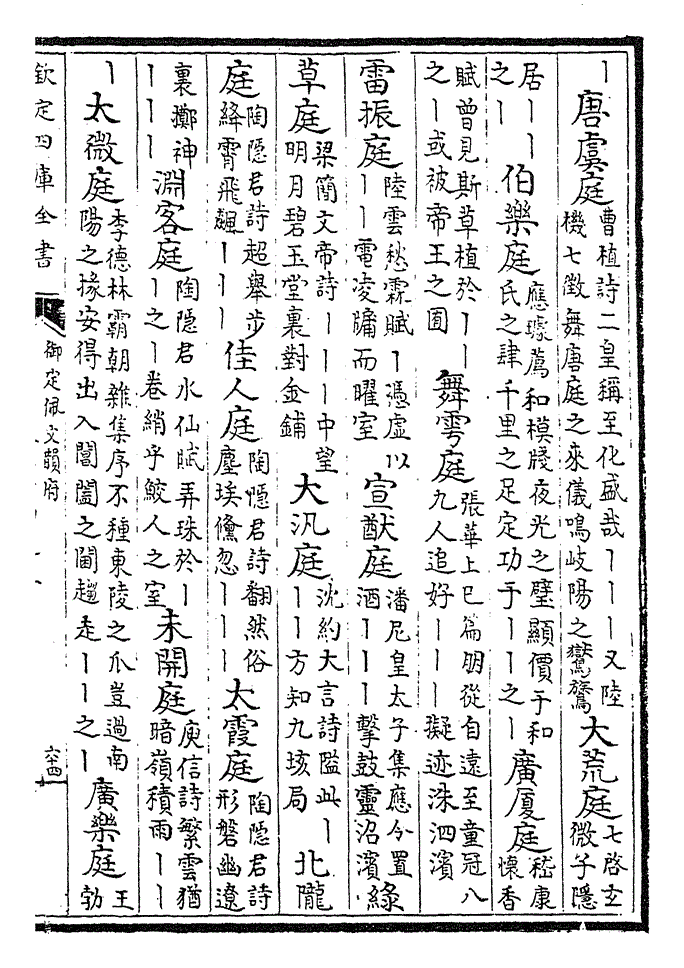 丨唐虞庭曹植詩二皇稱至化盛哉丨丨丨又陸機七徵舞唐庭之來儀鳴岐陽之鸑鷟大荒庭七啓玄微子隱
居丨丨之丨伯樂庭應璩薦和模牋夜光之璧顯價于和氏之肆千里之足定功于丨丨之丨廣厦庭嵇康懷香
賦曾見斯草植於丨丨之丨或被帝王之囿舞雩庭張華上巳篇朋從自遠至童冠八九人追好丨丨丨擬迹洙泗濱
雷振庭陸雲愁霖賦丨憑虛以丨丨電凌牖而曜室宣猷庭潘尼皇太子集應令置酒丨丨丨擊鼓靈沼濱綠
草庭梁簡文帝詩丨丨丨中望明月碧玉堂裏對金鋪大汎庭沈約大言詩隘此丨丨丨方知九垓局北隴
庭陶隱君詩超舉步絳霄飛飆丨丨丨佳人庭陶隱君詩翻然俗塵埃儵忽丨丨丨太霞庭陶隱君詩形磐幽遼
裏擲神丨丨丨淵客庭陶隱君水仙賦弄珠於丨丨之丨卷綃乎鮫人之室未開庭庾信詩繁雲猶暗嶺積雨丨丨
丨太微庭李德林霸朝雜集序不種東陵之瓜豈過南陽之掾安得出入閶闔之閫趨走丨丨之丨廣樂庭王勃
欽定四庫全書
御定佩文韻府